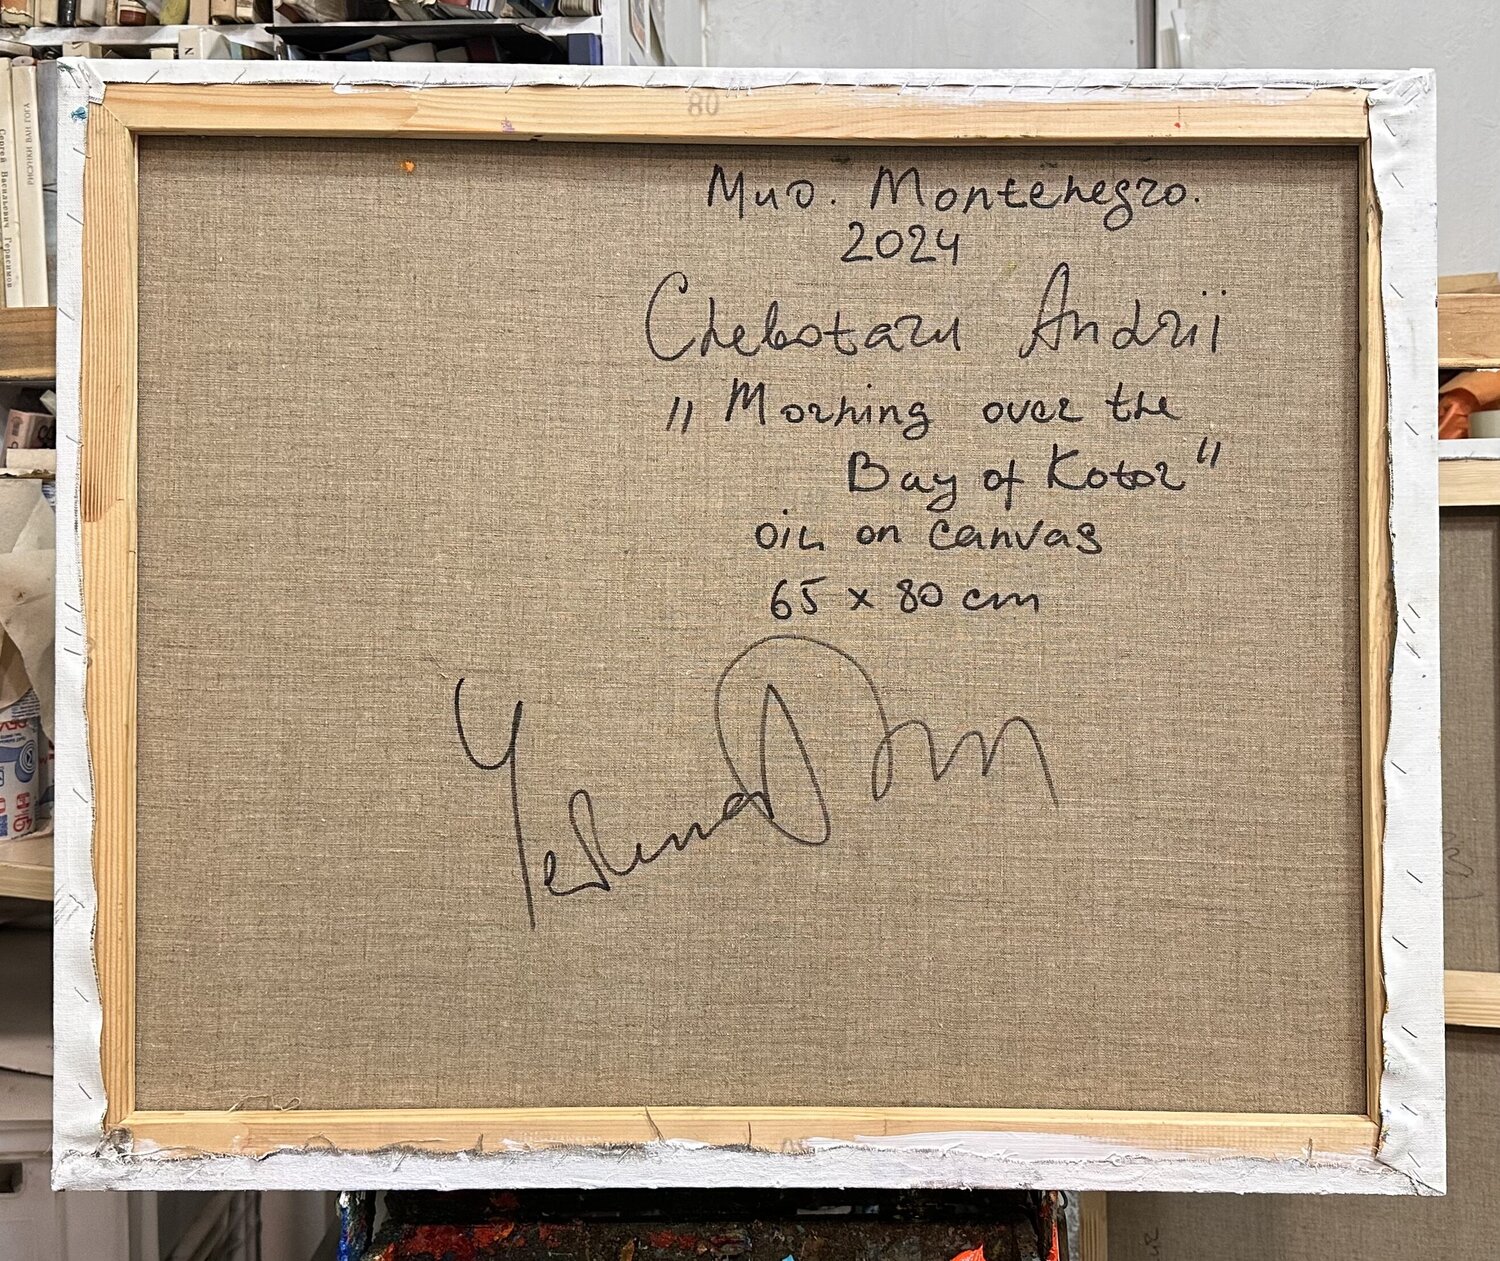 Сергей Васильевич Герасимов
РИСУНКИ ВАН ГОГА
80
Мио. Montenegro.
2024
Chebotaru Andrii
„Morning over the
Bay of Kotor"
oil on canvas
65 x 80 cm